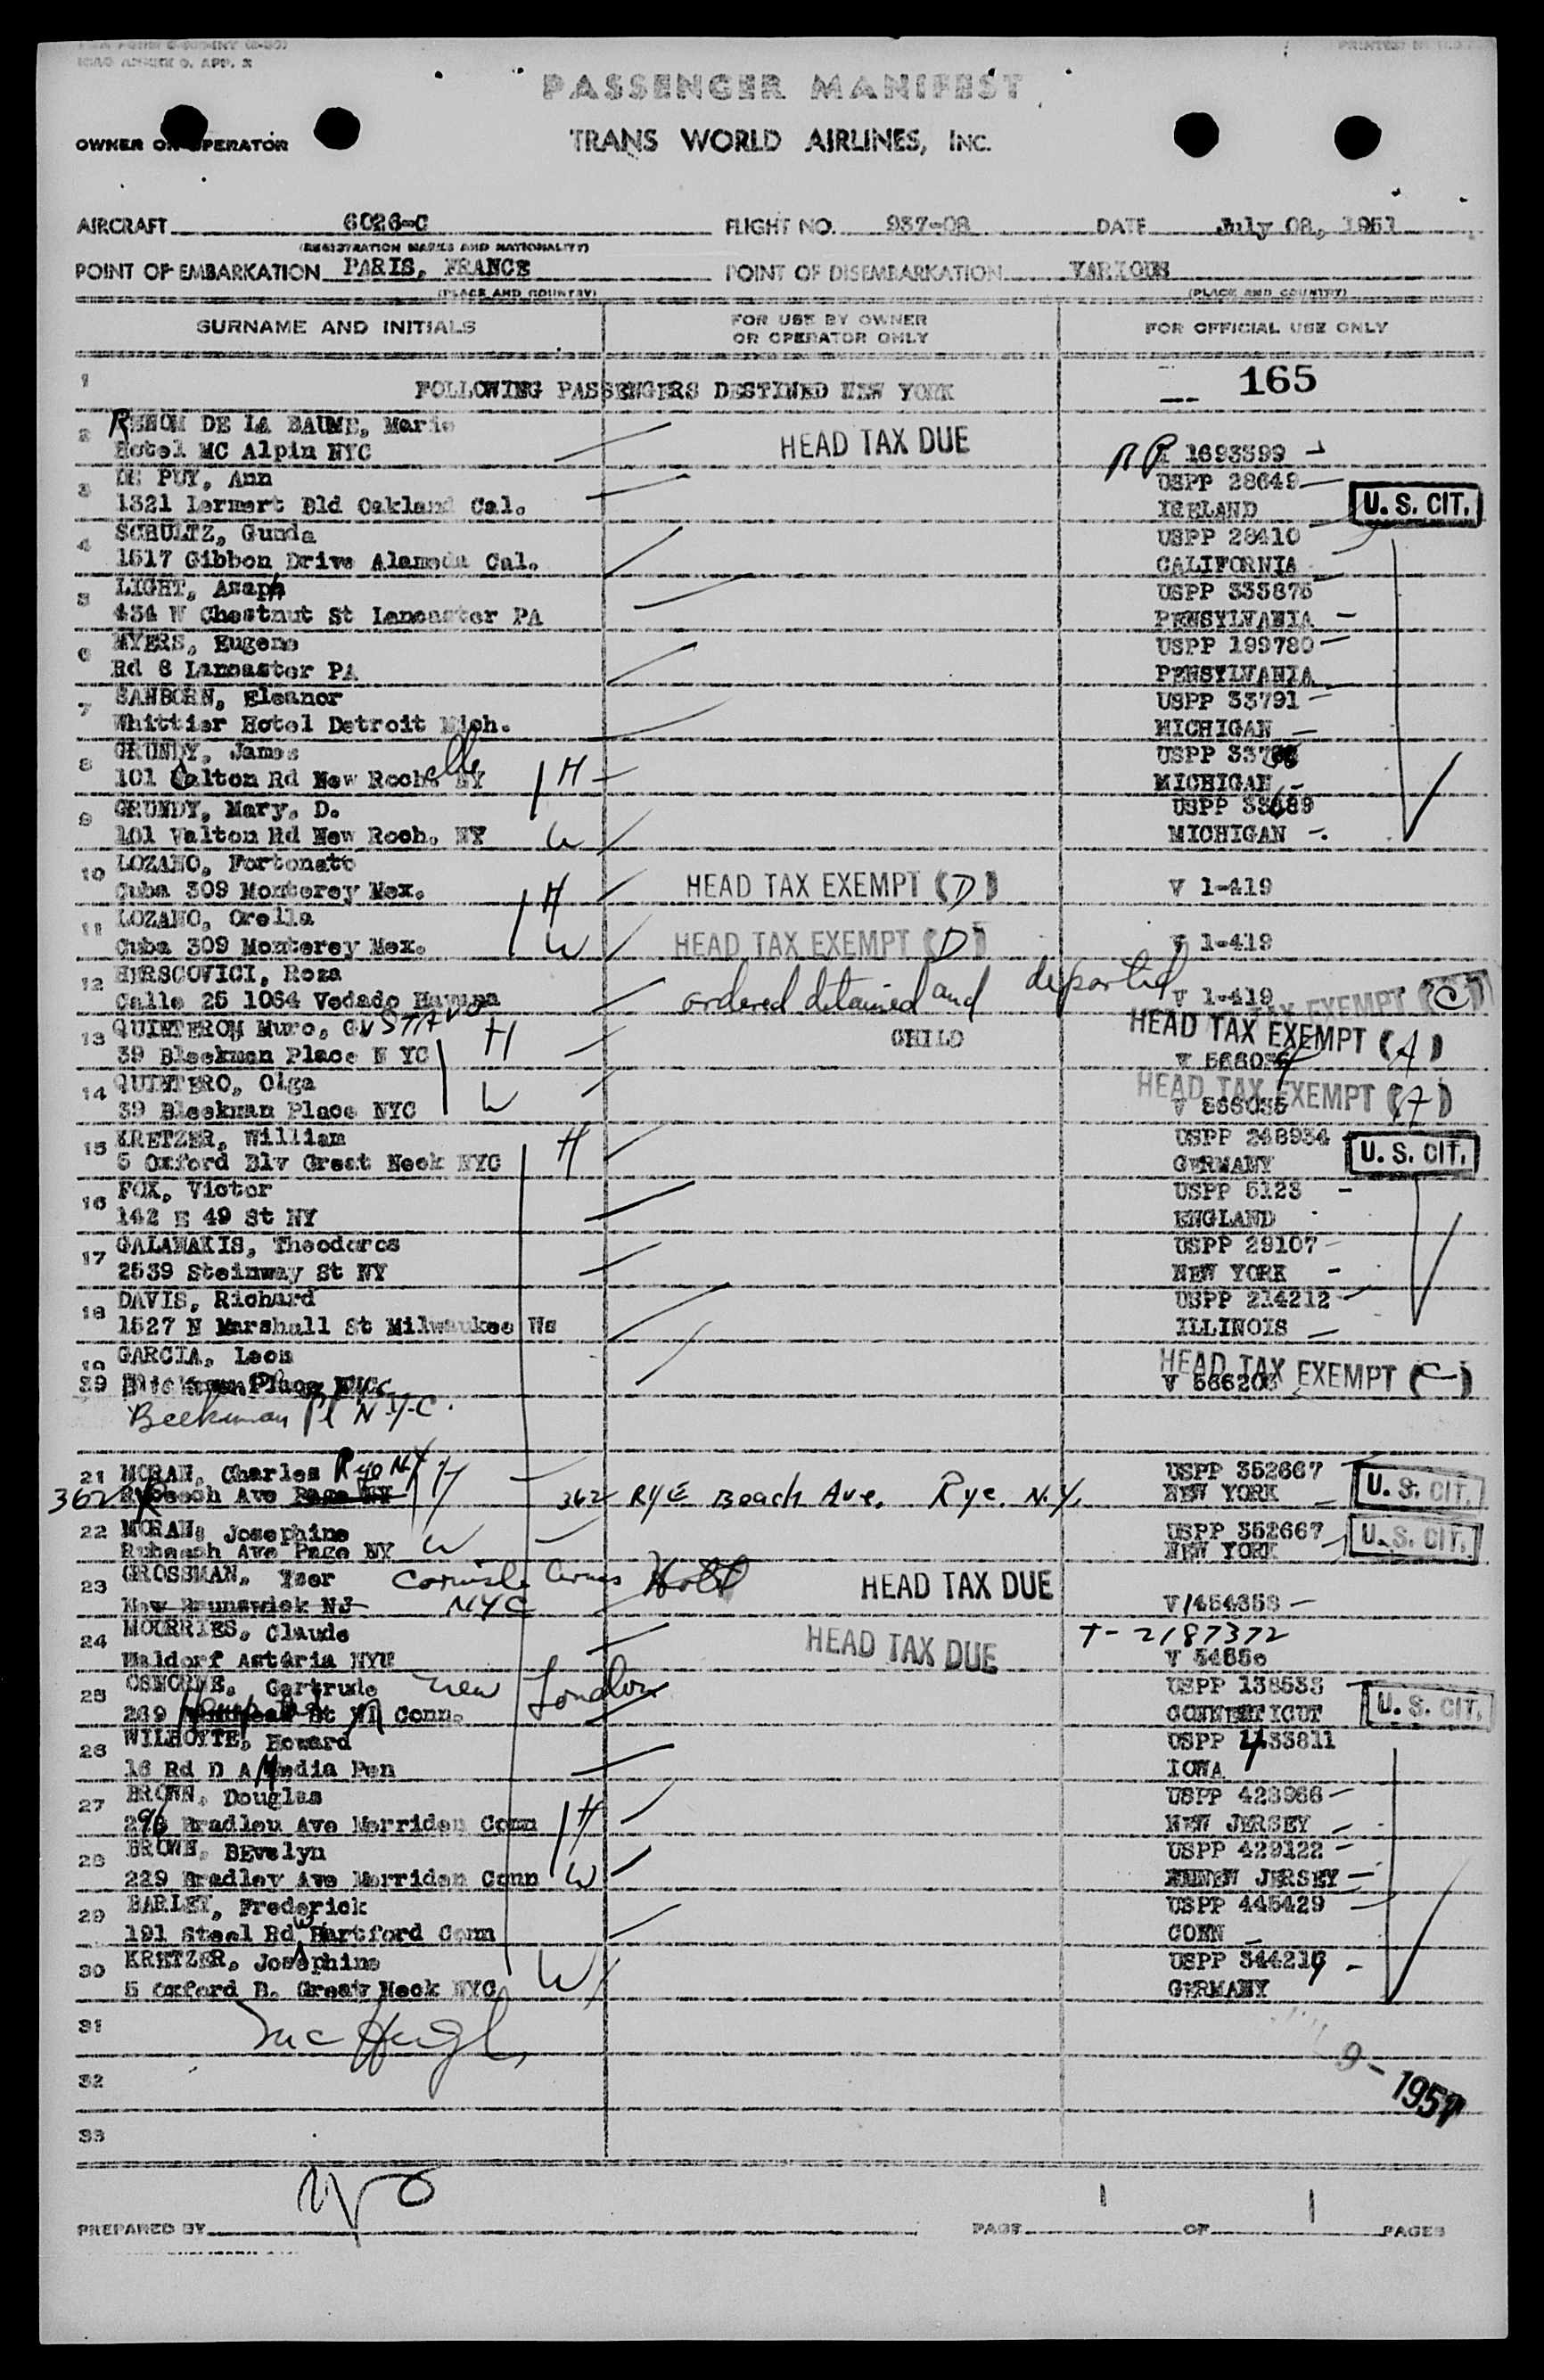 ICAO ANNEX 9, APP. 3
PASSENGER MANIFEST
OWNER OR OPERATOR
TRANS WORLD AIRLINES, INC.
AIRCRAFT 6026-C FLIGHT NO. 937-08 DATE July 08, 1951
(REGISTRATION MARKS AND NATIONALITY)
POINT OF EMBARKATION PARIS, FRANCE POINT OF DISEMBARKATION VARIOUS
(PLACE AND COUNTRY) (PLACE AND COUNTRY)
SURNAME AND INITIALS FOR USE BY OWNER OR OPERATOR ONLY FOR OFFICIAL USE ONLY
1 FOLLOWING PASSENGERS DESTINED NEW YORK 165
2 RENOM DE LA BAUME, Marie
Hotel MC Alpin NYC HEAD TAX DUE 1693599
3 DE PUY, Ann USPP 28649
1321 Lermert Bld Oakland Cal. IRELAND U. S. CIT.
4 SCHULTZ, Gunda USPP 28410
1517 Gibbon Drive Alameda Cal. CALIFORNIA
5 LIGHT, Asaph USPP 333876
434 W Chestnut St Lancaster PA PENSYLVANIA
6 MYERS, Eugene USPP 199780
Rd 8 Lancaster PA PENSYLVANIA
7 SANBORN, Eleanor USPP 33791
Whittier Hotel Detroit Mich. MICHIGAN
8 GRUNDY, James USPP
101 Calton Rd New Rochelle NY H MICHIGAN
9 GRUNDY, Mary, D. USPP 33689
101 Valton Rd New Roch. NY W MICHIGAN
10 LOZANO, Fortonato
Cuba 309 Monterey Mex. H HEAD TAX EXEMPT (D) V 1-419
11 LOZANO, Orella
Cuba 309 Monterey Mex. W HEAD TAX EXEMPT (D) V 1-419
12 HERSCOVICI, Rosa
Calle 25 1064 Vedado Havana ordered detained and deported V 1-419 TAX EXEMPT (C)
13 QUINTERO Muro, GUSTAVO H CHILD HEAD TAX EXEMPT (A)
39 Bleekman Place N YC
14 QUINTERO, Olga HEAD TAX EXEMPT (A)
39 Bleekman Place NYC W V 566035
15 KRETZER, William H USPP 248934
5 Oxford Blv Great Neck NYC GERMANY U. S. CIT.
16 FOX, Victor USPP 5123
142 E 49 St NY ENGLAND
17 GALANAKIS, Theodoros USPP 29107
2539 Steinway St NY NEW YORK
18 DAVIS, Richard USPP 214212
1527 N Marshall St Milwaukee Ws ILLINOIS
19 GARCIA, Leon HEAD TAX EXEMPT (C)
39 Place NYC V 566206
Beekman Pl N.Y.C.
21 MORAN, Charles Rye NY H USPP 352667
362 Ave 362 RYE Beach Ave. Rye. N.Y. NEW YORK U. S. CIT.
22 MORAN, Josephine W USPP 352667
Rubeach Ave Page NY NEW YORK U. S. CIT.
23 GROSSMAN, Yzer Cornish Arms Hotel HEAD TAX DUE
New Brunswick NJ NYC V 1454353
24 MOURRIES, Claude HEAD TAX DUE T-2187372
Waldorf Astaria NYU
25 OSBORNE, Gertrude New London USPP 138533
269 St Conn. CONNECTICUT U. S. CIT.
26 WILHOYTE, Howard USPP
16 Rd D A Media Pen IOWA
27 BROWN, Douglas H USPP 423966
296 Bradley Ave Merriden Conn NEW JERSEY
28 BROWN, BEvelyn USPP 429122
229 Bradley Ave Merriden Conn W NEW JERSEY
29 BARLEY, Frederick USPP 445429
191 Steel Rd W Hartford Conn CONN
30 KRETZER, Josephine USPP 344216
5 Oxford B. Great Neck NYC W GERMANY
31 McHugh
32 9-1951
33
PREPARED BY PAGE 1 OF 1 PAGES